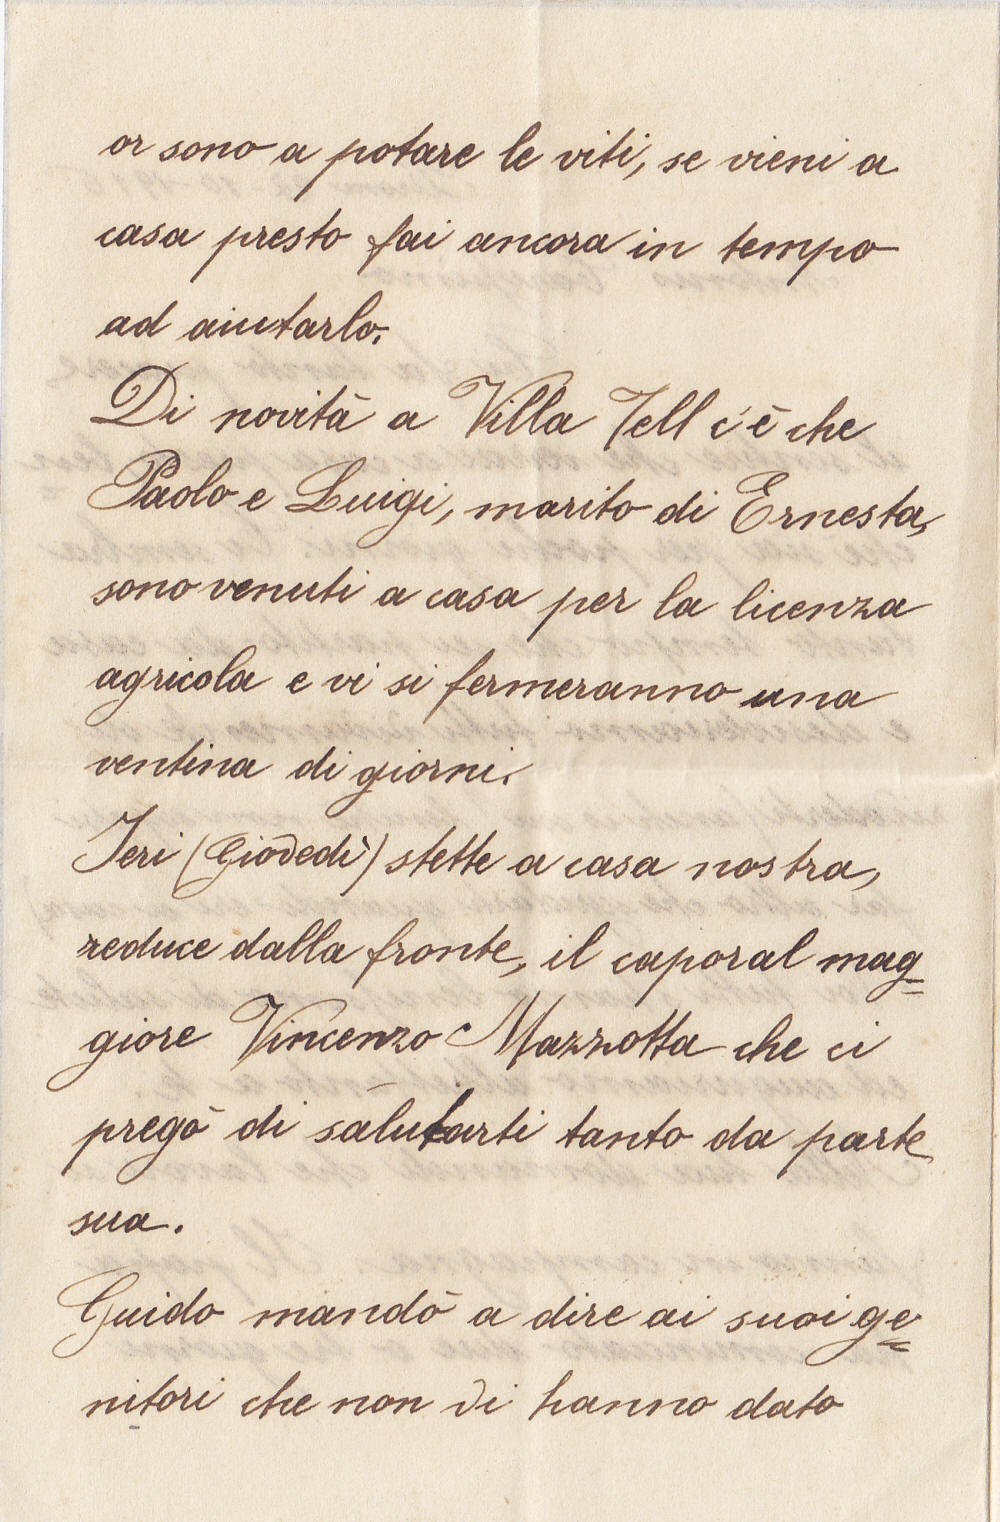 or sono a potare le viti, se vieni a
casa presto fai ancora in tempo
ad aiutarlo.
Di novità a Villa Tell c'è che
Paolo e Luigi, marito di Ernesta,
sono venuti a casa per la licenza
agricola e vi si fermeranno una
ventina di giorni.
Ieri (Giovedì) stette a casa nostra,
reduce dalla fronte, il caporal mag=
giore Vincenzo Mazzotta che ci
pregò di salutarti tanto da parte
sua.
Guido mandò a dire ai suoi ge=
nitori che non vi hanno dato